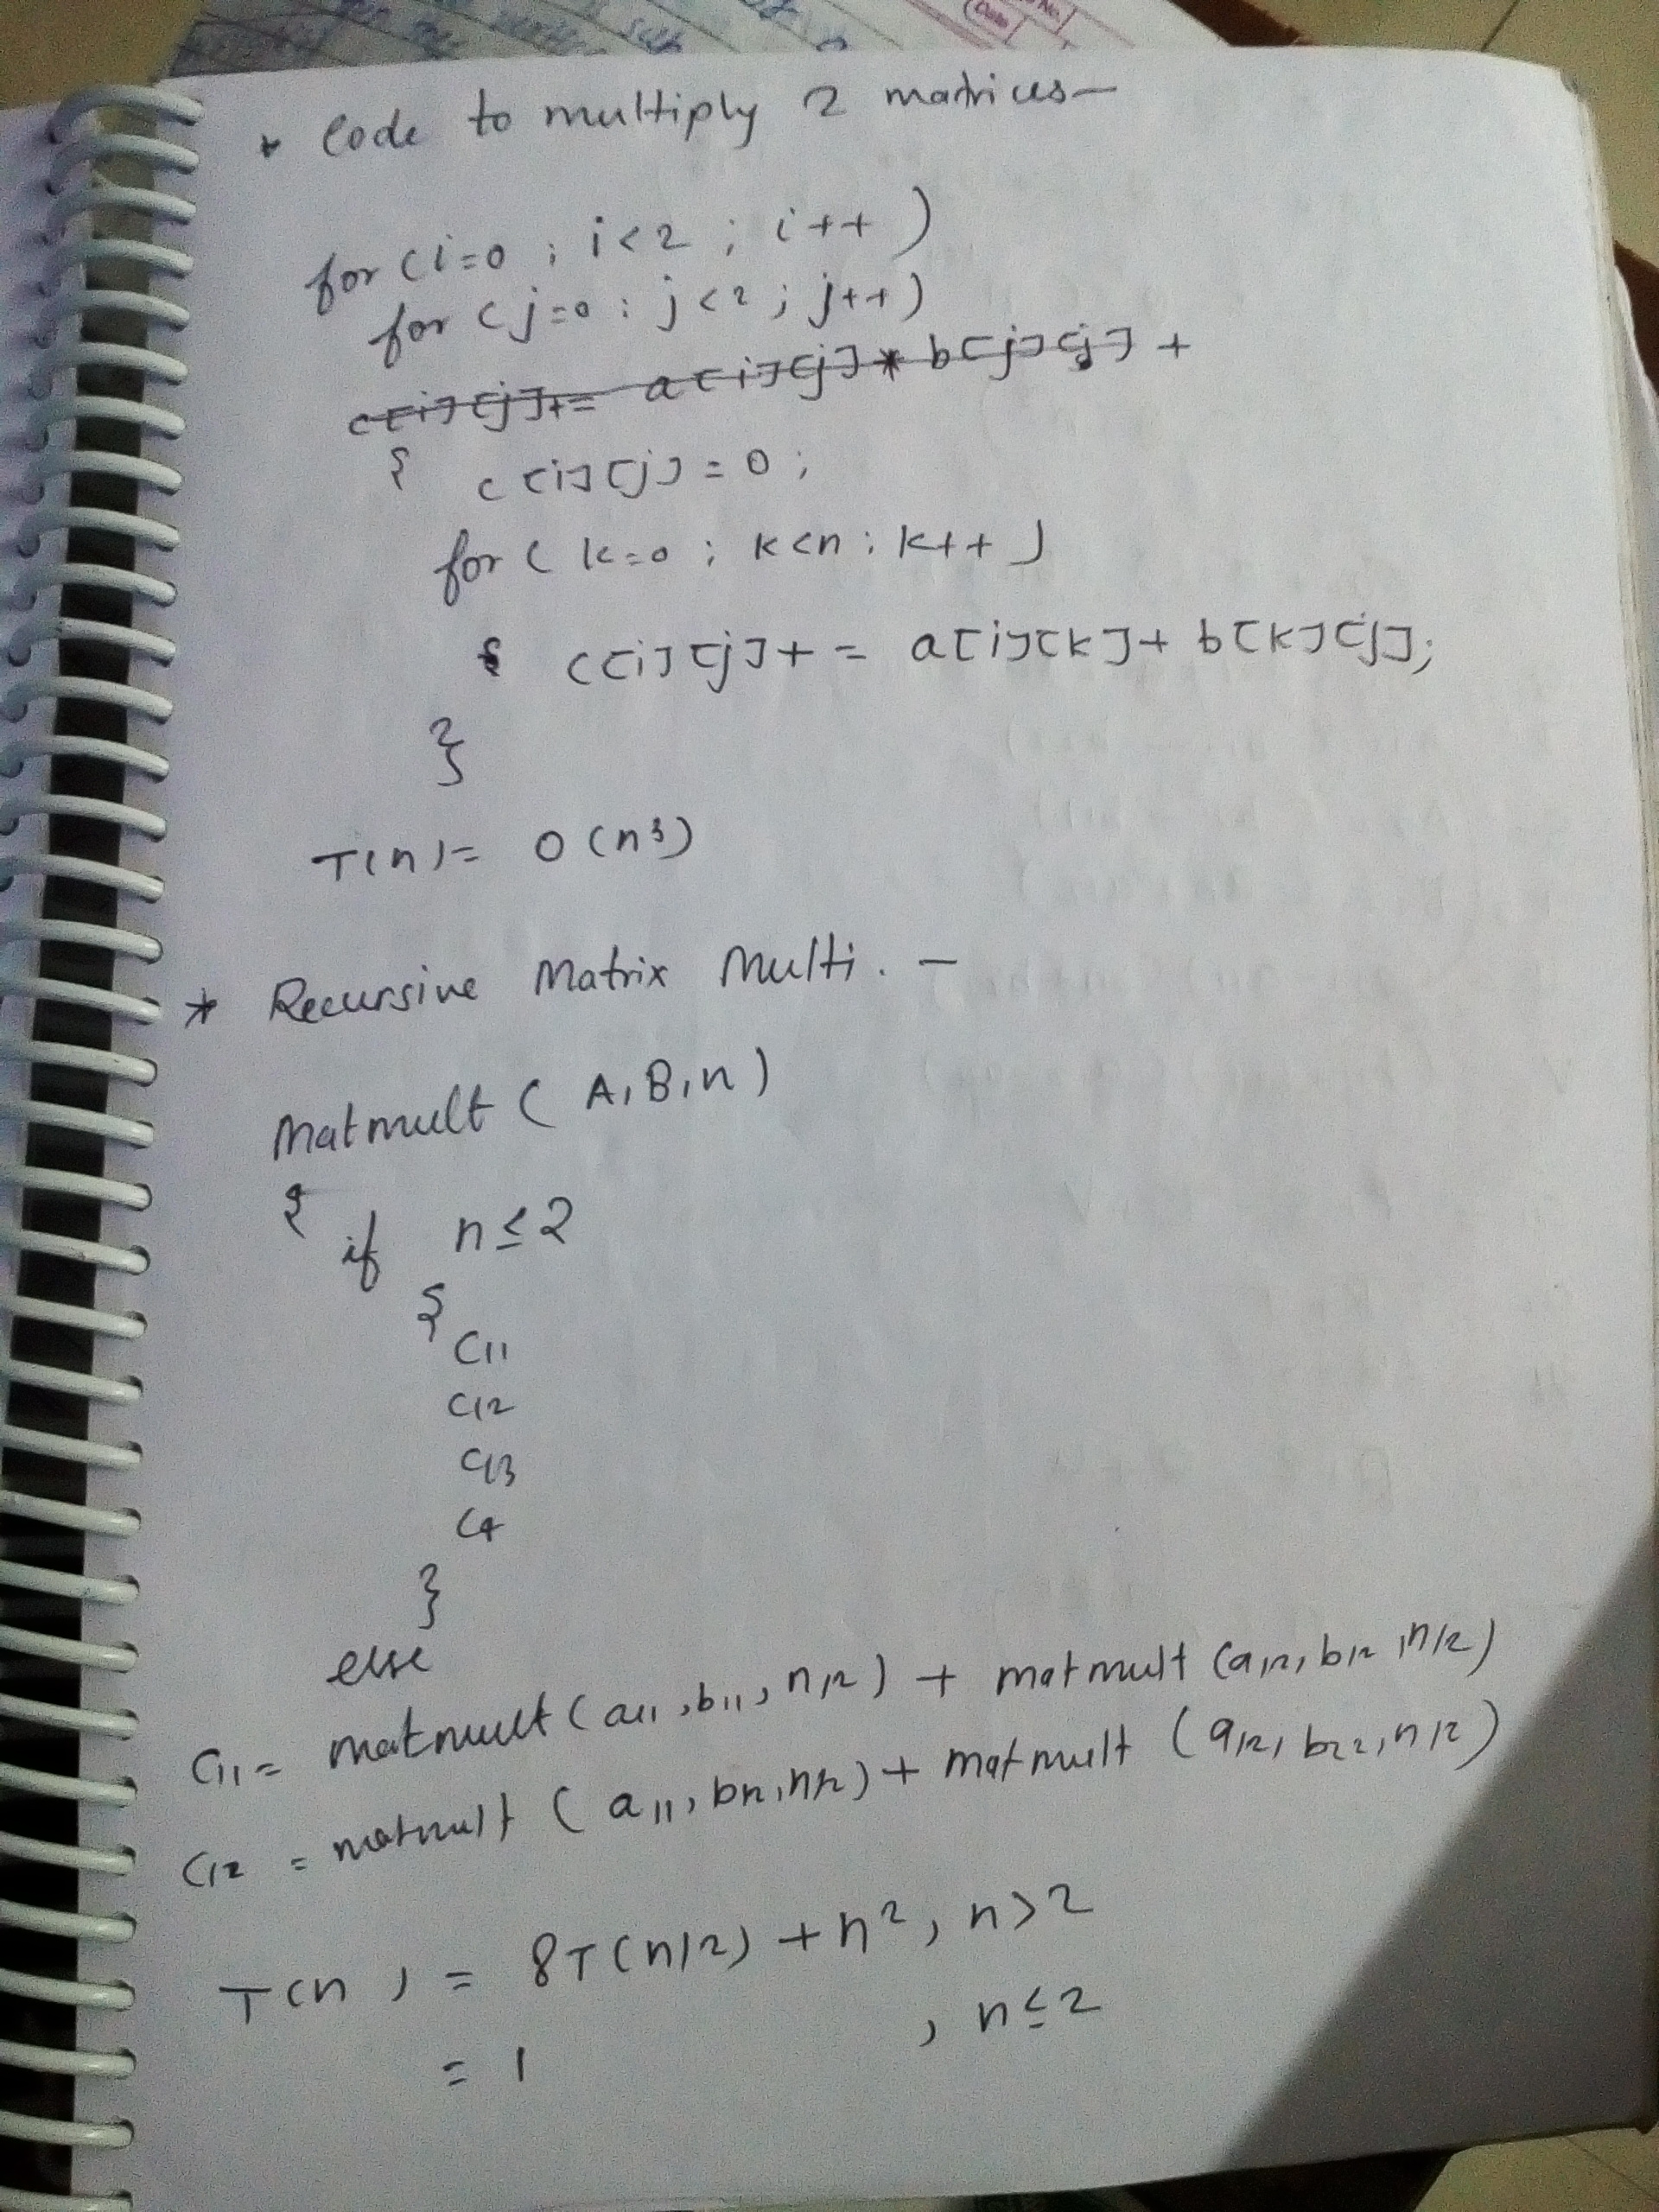 (Date
No.
* Code to multiply 2 matrices—
for (i=0 ; i<2 ; i++ )
for (j=0 ; j<2 ; j++)
c[i][j]+= a[i][j]* b[j][j] +
{ c[i][j] = 0 ;
for ( k=0 ; k<n ; k++ )
{ c[i][j]+ = a[i][k]+ b[k][j];
}
T(n)= O(n³)
* Recursive Matrix Multi. —
Matmult ( A,B,n)
{
if n≤2
{
C11
C12
C13
C4
}
else
C11= matmult ( a11 ,b11 , n/2 ) + matmult (a12, b12 ,n/2)
C12 = matmult ( a11, b12,n/2) + matmult (a12, b22,n/2)
T(n ) = 8T(n/2) + n², n>2
= 1 , n≤2